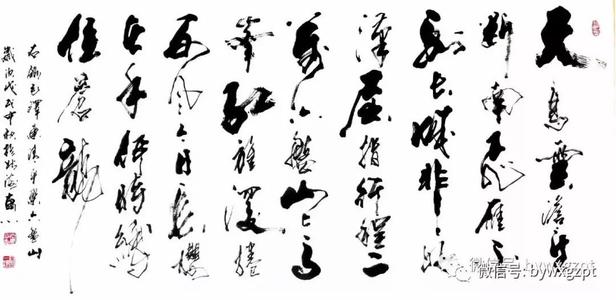 天高雲淡望
断南飞雁不
到长城非好
漢屈指行程二
萬六盤山上高
峯红旗漫捲
西风今日长缨
在手何時縛
住蒼龍
右錄毛澤東清平樂六盤山
歲次戊戌中秋
微信号: bywxgzpt